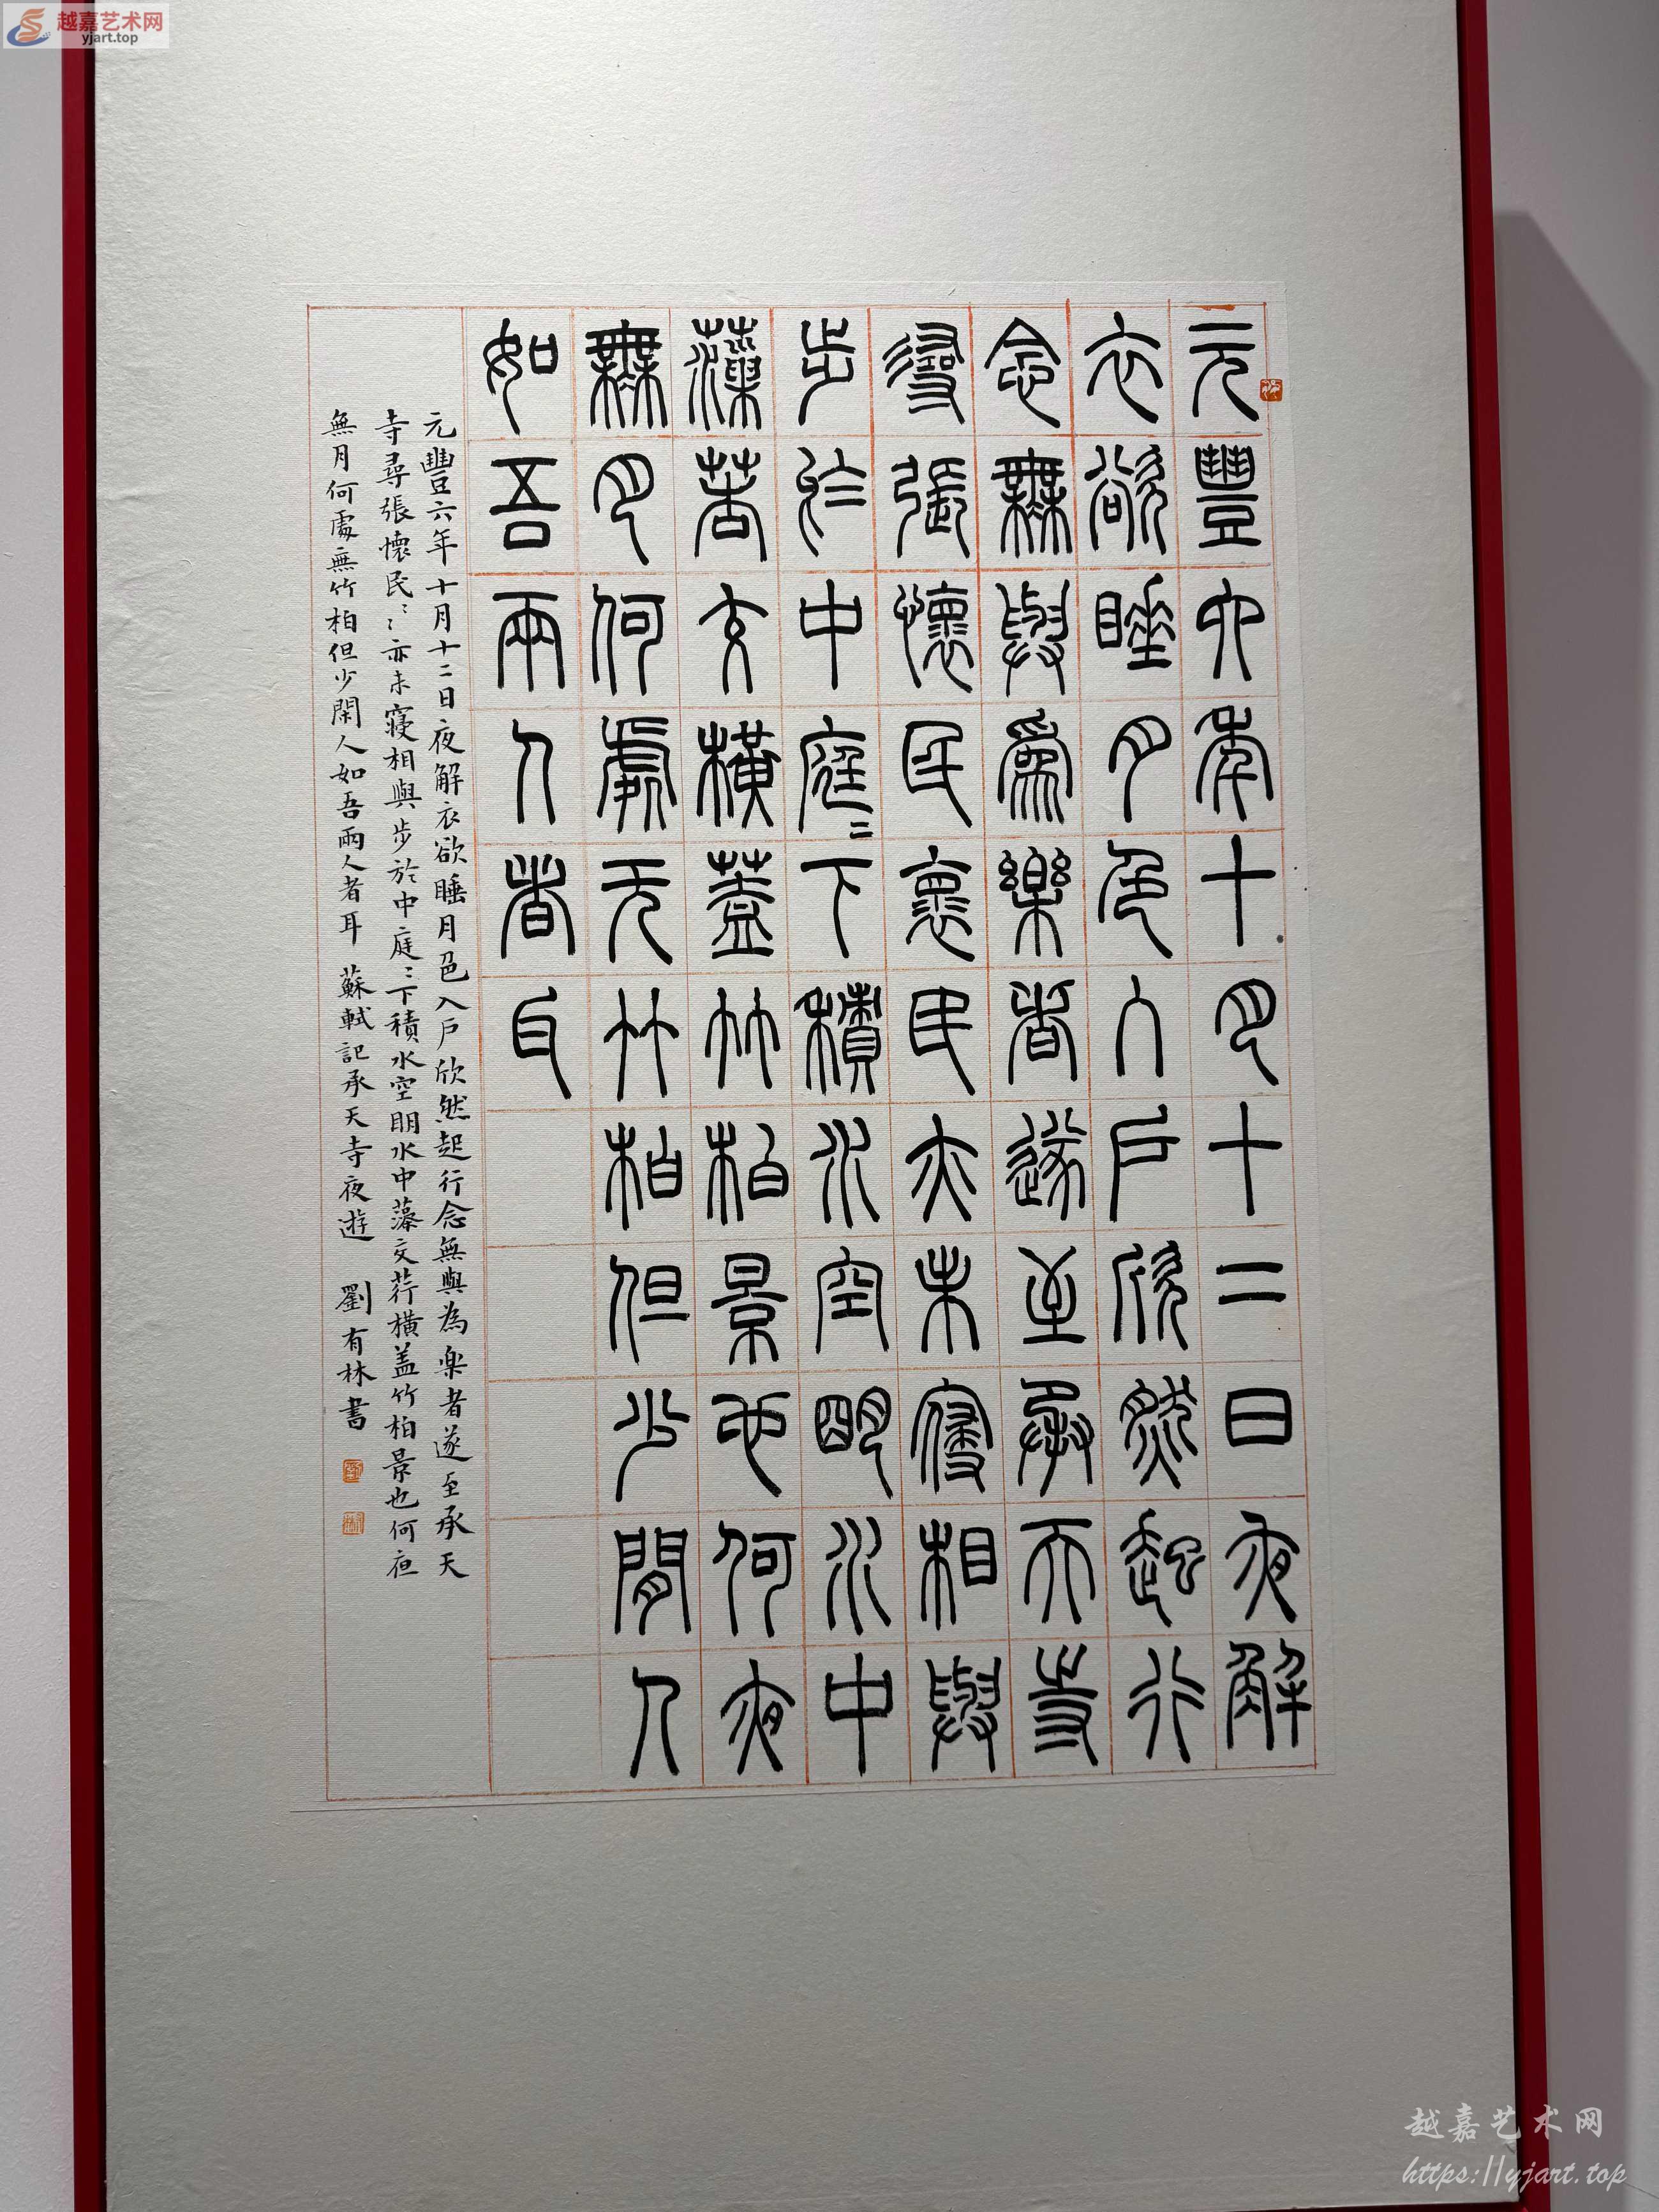 越嘉艺术网
yjart.top
元豐六年十月十二日夜解
衣欲睡月色入戶欣然起行
念無與爲樂者遂至承天寺
尋張懷民褱民亦未寢相與
步於中庭〻下積水空明水中
藻莕交橫蓋竹柏景也何夜
無月何處无竹柏但少閒人
如吾兩人者耳
元豐六年十月十二日夜解衣欲睡月色入戶欣然起行念無與為楽者遂至承天
寺尋張懷民〻亦未寢相與步於中庭〻下積水空明水中藻交荇橫盖竹柏景也何夜
無月何處無竹柏但少閑人如吾兩人者耳 蘇軾記承天寺夜遊 劉有林書
越嘉艺术网
https://yjart.top